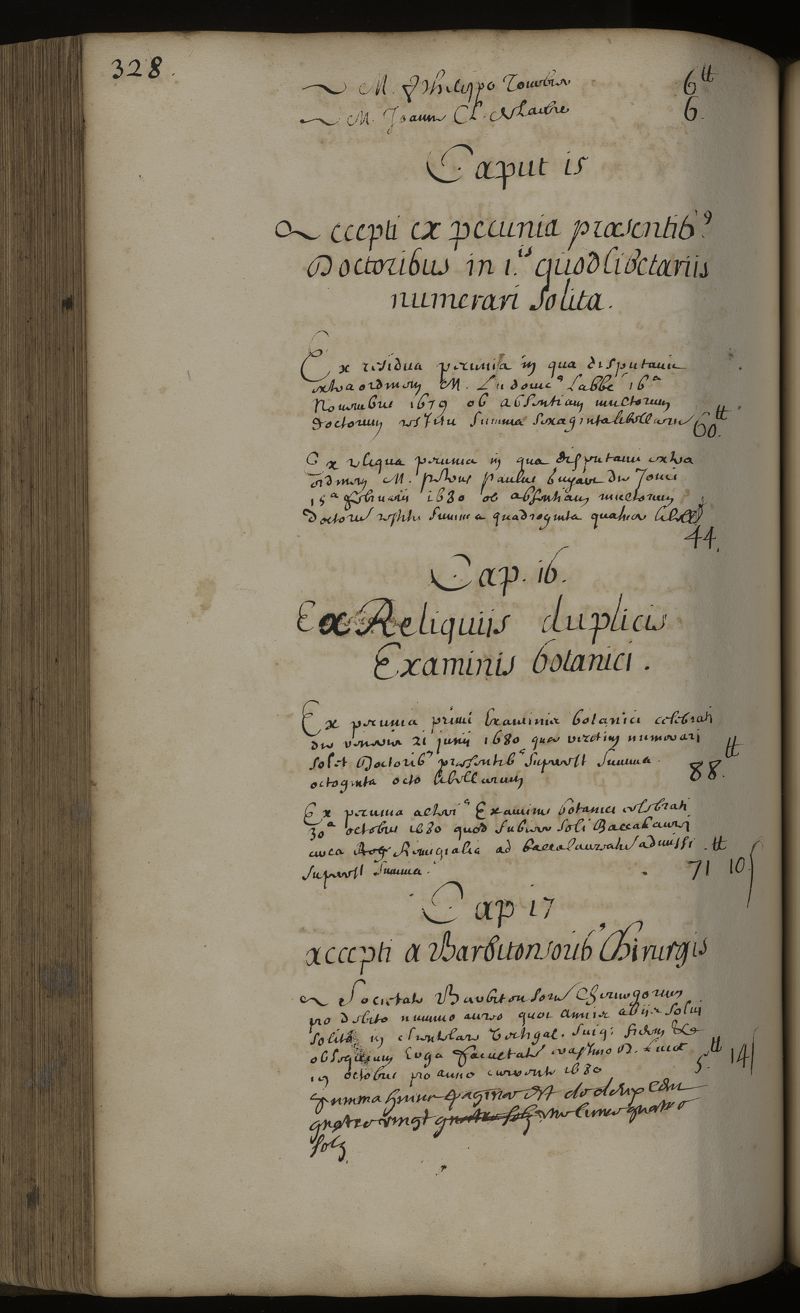 328.
M. Philippo Doubin 6 ₶
M. Joanne Cl. 6.
Caput 15
Accepti ex pecunia præsentib⁹
Doctoribus in i.is quodlibetariis
numerari solita.
Ex residua pecunia in qua disputavit
extraordinem M. Ludovic⁹ Labbé 16ᵃ
Novembris 1679 ob absentiam multorum
doctorum restitit summa sexaginta libellarum 60 ₶.
Ex reliqua pecunia in qua disputavit extra
ordinem M. Petrus Paulus Guyard die Jovis
15ᵃ februarii 1680 ob absentiam multorum
doctoru restitit summa quadraginta quatuor libell
44.
Cap. 16.
Ex Reliquiis duplicis
Examinis botanici.
Ex pecunia primi Examinis botanici celebrati
die veneris 21 junii 1680 quæ viritim numerari
solet Doctorib⁹ præsentib⁹ superest summa ₶
octoginta octo libellarum 88.
Ex pecunia alteri⁹ Examinis botanici celebrati
30ᵃ octobris 1680 quod subiere soli Baccalaurei
circa Remigialia ad baccalaureatu admissi ₶
superest summa. 71 10 ʃ
Cap 17
accepti a Barbitonsorib⁹ Chirurgis
A Societate Barbitonsoru Chirurgorum
pro debito nummo aureo quot annis ab iis solvi
solito in clientelare vectigal. suiq; fidem &
obsequium erga facultatem M. Lucæ ₶
19 octobris pro anno currente 1680 5. 14 ʃ
Summa hujus paginæ est de deux cen
quatre vingt une livres quatre
solz